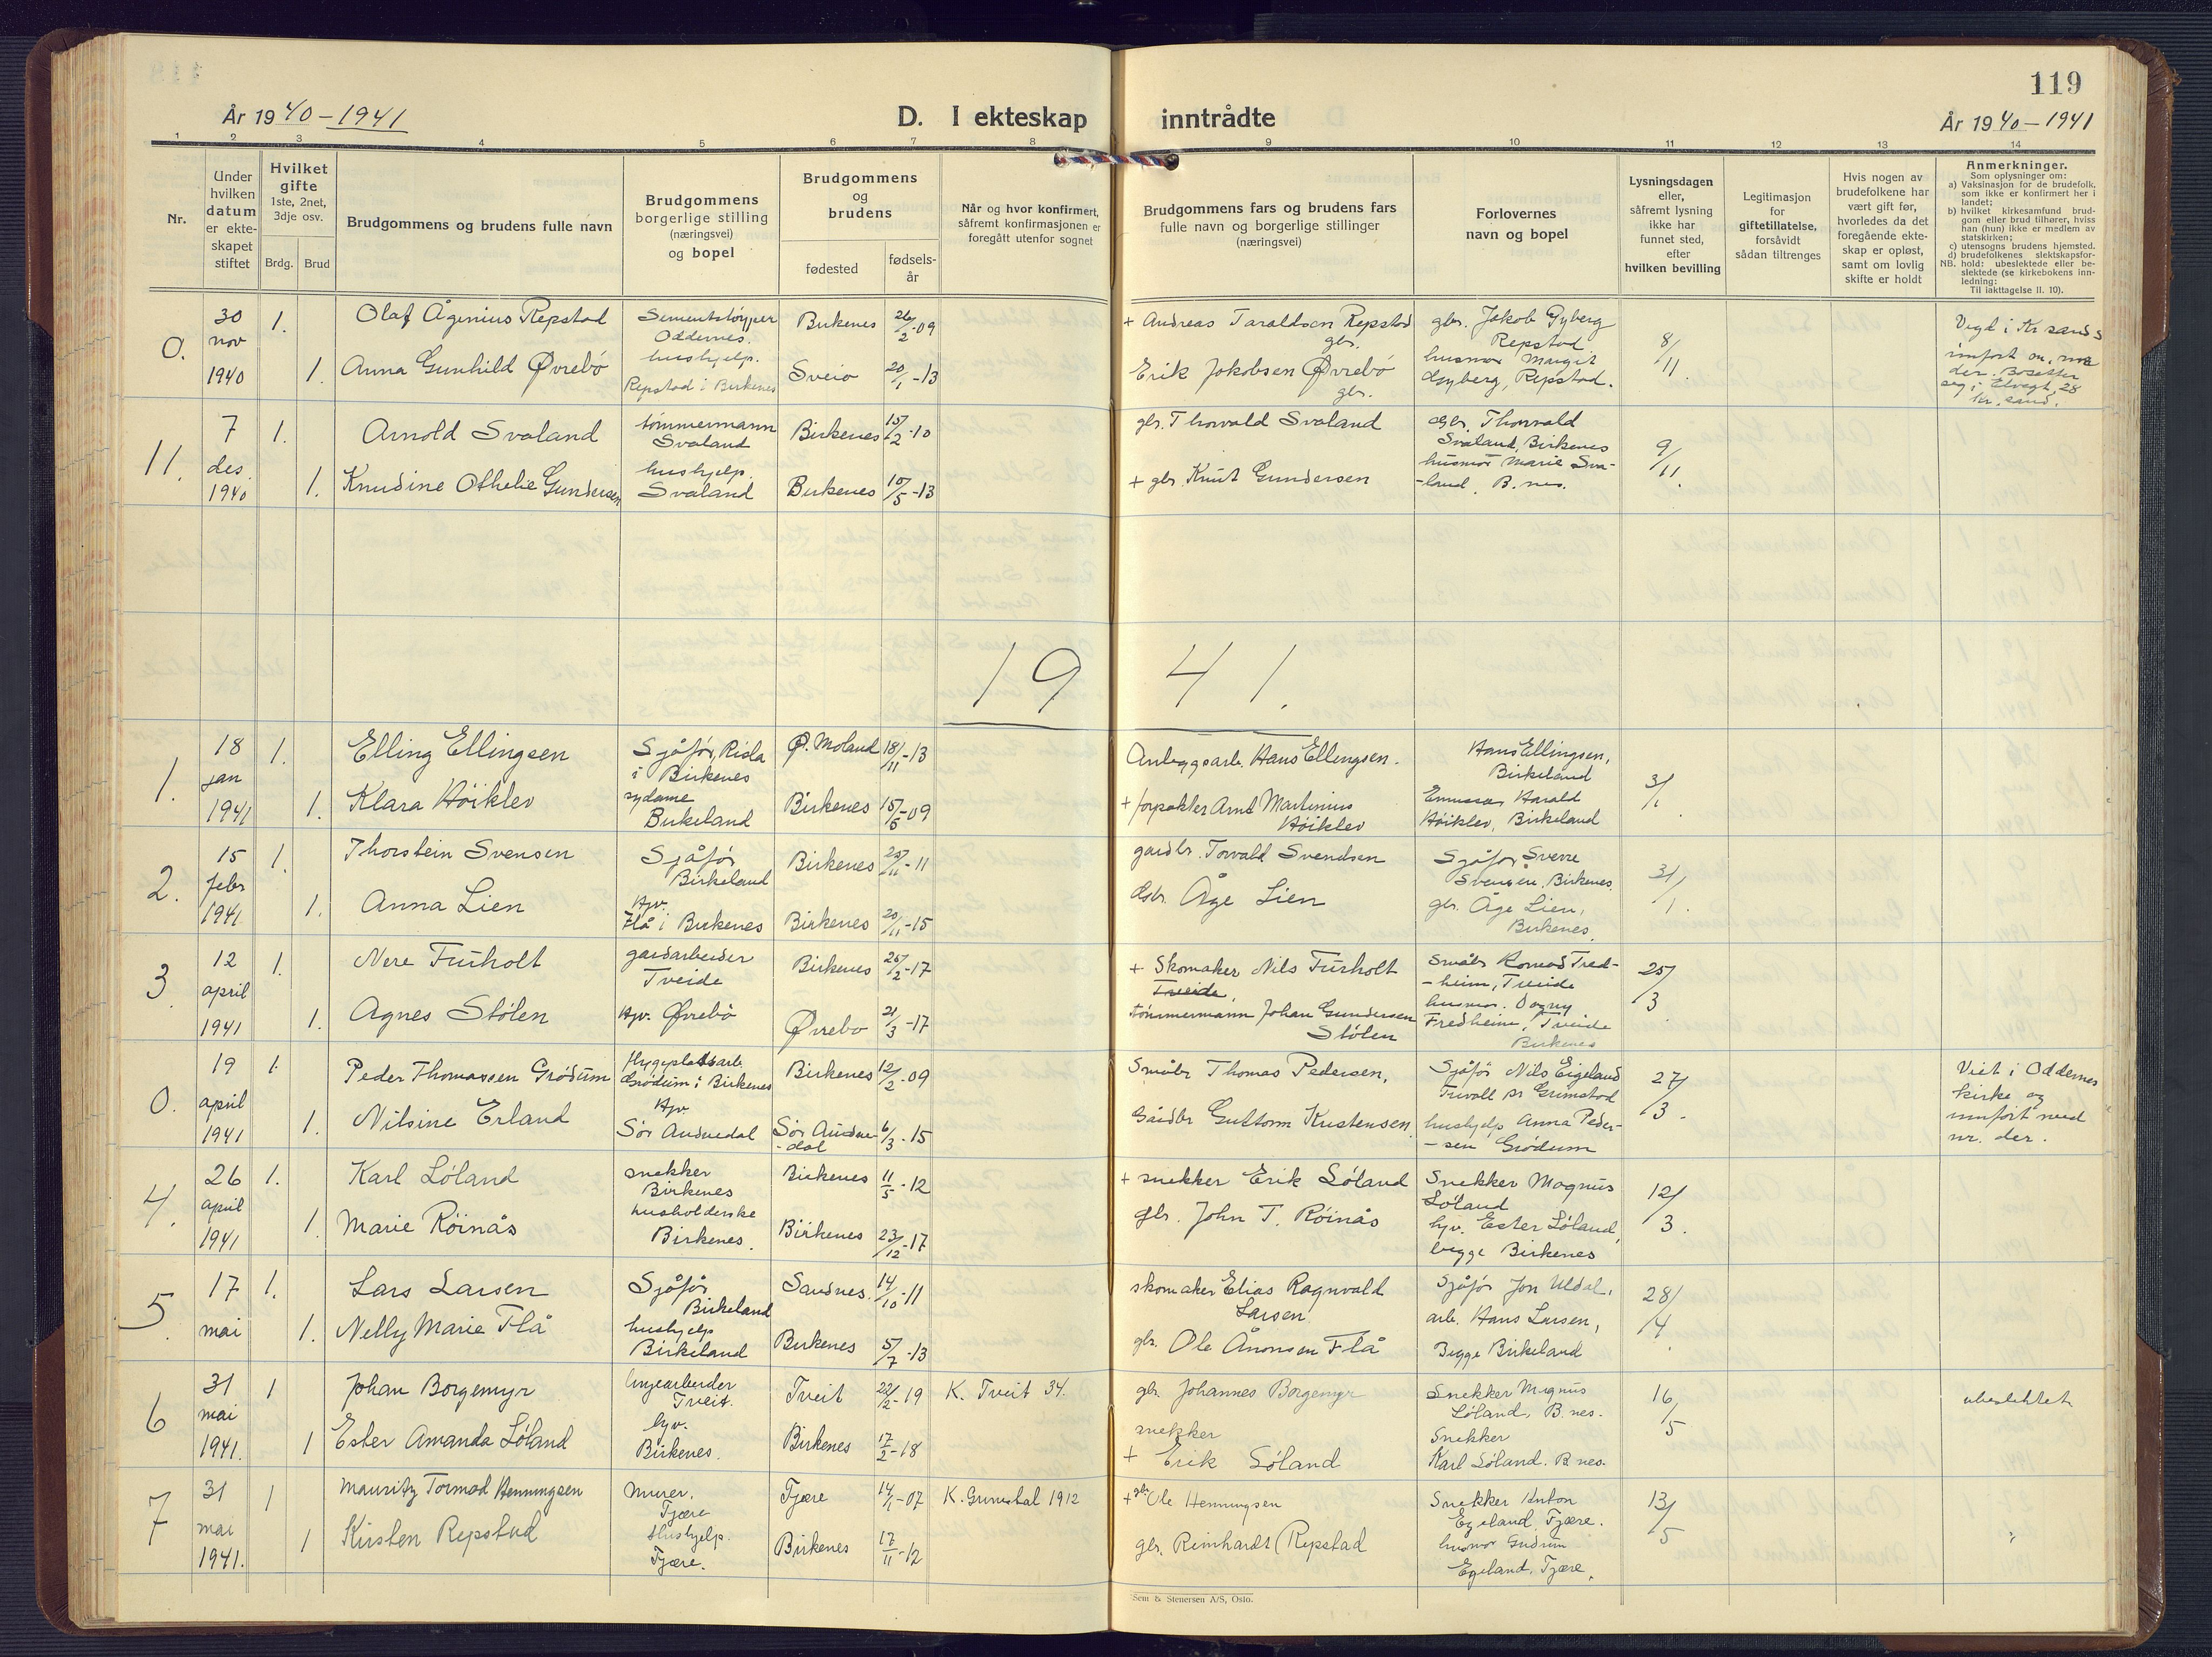 119
År 1940 – 1941
D. I ekteskap inntrådte
År 1940 – 1941
1 2 3 4 5 6 7 8 9 10 11 12 13 14
Nr.
Under
hvilken
datum
er ekte-
skapet
stiftet
Hvilket
gifte
1ste, 2net,
3dje osv.
Brdg. Brud
Brudgommens og brudens fulle navn
Brudgommens
borgerlige stilling
(næringsvei)
og bopel
Brudgommens
og
brudens
fødested
fødsels-
år
Når og hvor konfirmert,
såfremt konfirmasjonen er
foregått utenfor sognet
Brudgommens fars og brudens fars
fulle navn og borgerlige stillinger
(næringsvei)
Forlovernes
navn og bopel
Lysningsdagen
eller,
såfremt lysning
ikke har
funnet sted,
efter
hvilken bevilling
Legitimasjon
for
giftetillatelse,
forsåvidt
sådan tiltrenges
Hvis nogen av
brudefolkene har
vært gift før,
hvorledes da det
foregående ekte-
skap er opløst,
samt om lovlig
skifte er holdt
Anmerkninger.
Som oplysninger om:
a) Vaksinasjon for de brudefolk,
som ikke er konfirmert her i
landet;
b) hvilket kirkesamfund brud-
gom eller brud tilhører, hviss
han (hun) ikke er medlem av
statskirken;
c) utensogns brudens hjemsted.
d) brudefolkenes slektskapsfor-
NB. hold: ubeslektede eller be-
slektede (se kirkebokens inn-
ledning:
Til iakttagelse II. 10).
0. 30 nov 1940
1. Olaf Ågenius Repstad
Sementstøyper
Oddernes.
Birkenes 26/2 -09
+ Andreas Taraldsen Repstad
gbr.
gbr. Jakob Gyberg
Repstad
8/11
Vigd i Kr sands
innført m. nr
der. Bosetter
seg i Elvegt. 28
Kr. sand.
1. Anna Gunhild Øvrebö
hushjelp.
Repstad i Birkenes
Sveio 20/1 -13
Erik Jakobsen Øvrebö
gbr.
husmor Margit
Gyberg, Repstad.
11. 7 des. 1940
1. Arnold Svaland
tømmermann
Svaland
Birkenes 15/2 -10
gbr. Thorvald Svaland
gbr. Thorvald
Svaland, Birkenes
9/11.
1. Knudine Othelie Gundersen
hushjelp
Svaland
Birkenes 10/5 -13
+ gbr. Knut Gundersen
husmor Marie Sva-
-land. B.nes.
19 41.
1. 18 jan 1941
1. Elling Ellingsen
Sjåfør, Risla
i Birkenes
Ø. Moland 18/11 -13
Anleggsarb. Hans Ellingsen.
Hans Ellingsen,
Birkeland
3/1.
1. Klara Höiklev
sydame
Birkeland
Birkenes 15/5 -09
+ forpakter Arnt Martinius
Höiklev
Harald
Höiklev, Birkeland
2. 15 febr 1941
1. Thorstein Svensen
Sjåför
Birkeland
Birkenes 25/11 -11
gardbr. Torvald Svendsen
Sjåför Sverre
Svensen, Birkenes.
31/1.
1. Anna Lien
Hjv.
Flå i Birkenes
Birkenes 20/11 -15
gbr. Åge Lien
gbr. Åge Lien,
Birkenes.
3. 12 april 1941
1. Nere Furholt
gardarbeider
Tveide
Birkenes 25/2 -17
+ Skomaker Nils Furholt
Tveide,
Småbr Konrad Fred-
-heim, Tveide
25/3.
1. Agnes Stölen
Hjv. Øvrebö
Øvrebo 21/3 -17
tömmermann Johan Gundersen
Stölen
husmor. Dagny
Fredheim, Tveide
Birkenes
0. 19 april 1941
1. Peder Thomassen Grödum
flygeplassarb.
Grödum i Birkenes
Birkenes 12/2 -09
Småbr Thomas Pedersen,
Sjåför Nils Eigeland
Trivoll pr Grimstad
27/3.
Viet i Oddernes
kirke og
innfört med
nr. der.
1. Nilsine Erland
Hjv
Sör Audnedal
Sör Audne-
-dal 6/3 -15
Gårdbr Guttorm Kristensen.
hushjelp Anna Peder-
-sen Grödum
4. 26 april 1941
1. Karl Löland
snekker
Birkenes
Birkenes 11/5 -12
+ snekker Erik Löland
Snekker Magnus
Löland
12/3.
1. Marie Röinås
husholderske
Birkenes.
Birkenes 23/12 -17
gbr. John T. Röinås
hjv. Ester Löland,
begge Birkenes
5. 17 mai
1. Lars Larsen
Sjåför
Birkeland
Sandnes. 14/10 -11
skomaker Elias Ragnvald
Larsen
Sjåför Jon Uldal,
arb. Hans Larsen,
28/4.
1. Nelly Marie Flå
hushjelp
Birkeland
Birkenes 5/7 -13
gbr. Ole Ånonsen Flå
Begge Birkeland
6 31 mai 1941.
1 Johan Borgemyr
Tveit.
Tveit 22/2 -19
K. Tveit 34.
gbr. Johannes Borgemyr
Snekker Magnus
Löland, B.nes.
16/5
ubeslektet
1 Ester Amanda Löland
hjv.
Birkenes.
Birkenes 17/2 -18
snekker
+ Erik Löland
Snekker
Karl Löland. B.nes.
7 31 mai 1941.
1 Mauritz Tormod Henningsen
Murer.
Fjære
Fjære 14/1 -07
K. Grimstad 1912
+ gbr. Ole Henningsen
Snekker Anton
Egeland, Fjære.
13/5
"
1 Kirsten Repstad
Hushjelp.
Fjære.
Birkenes 17/11 -12
gbr. Reinhardt Repstad
husmor Gudrun
Egeland, Fjære.
Sem & Stenersen A/S, Oslo.